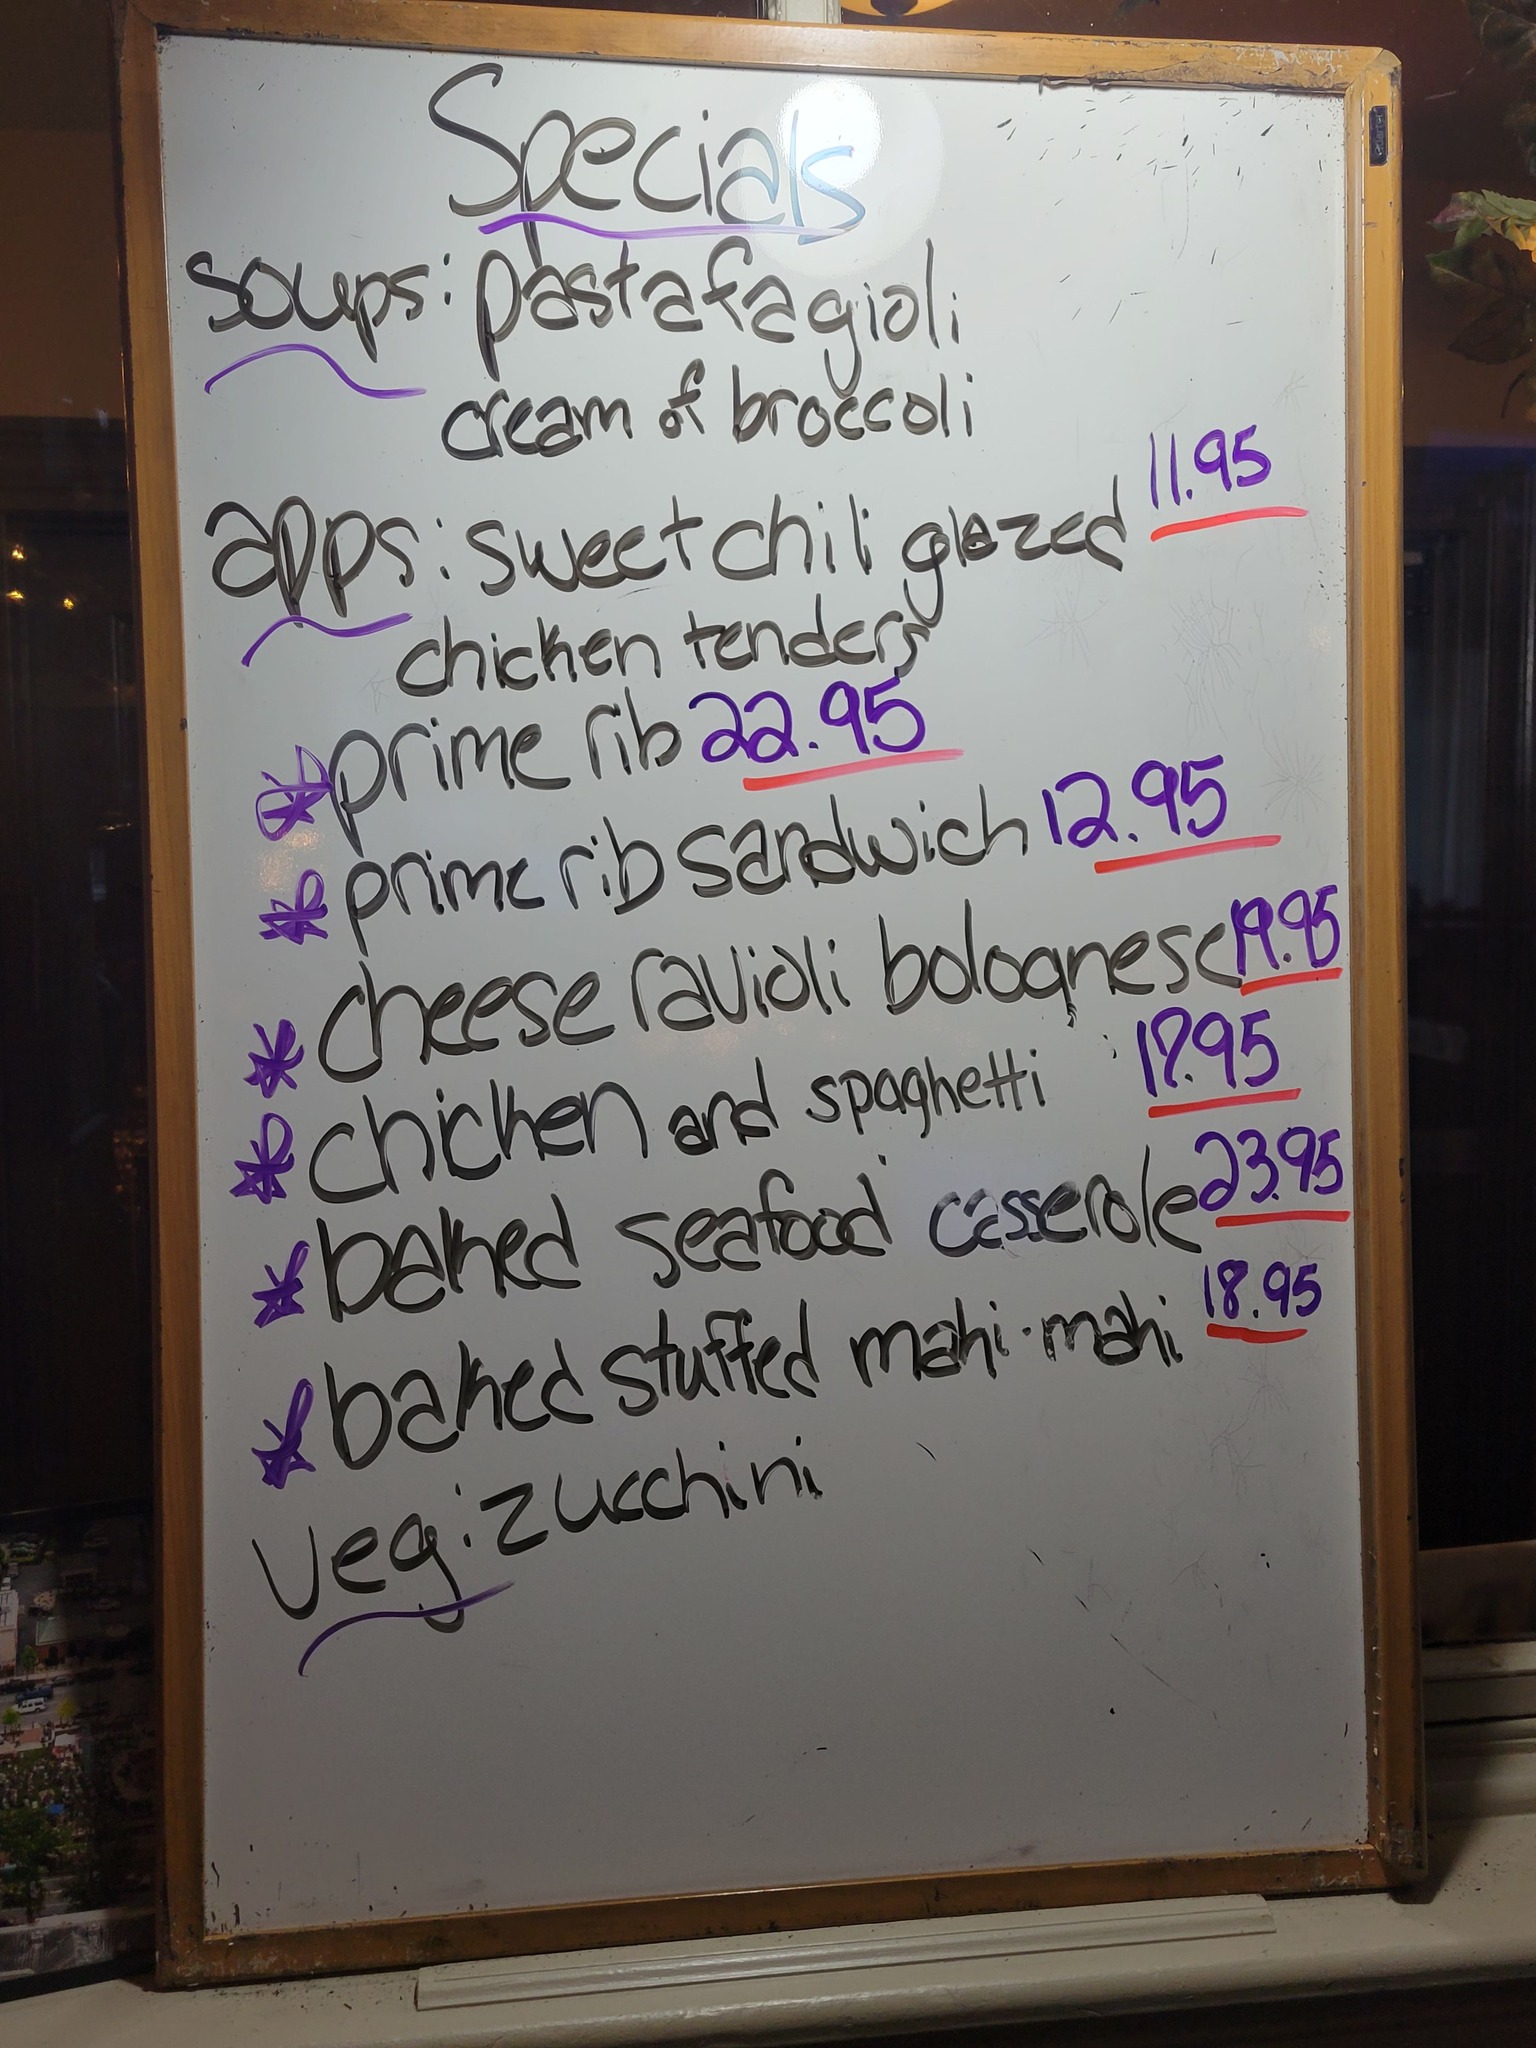 Specials
soups: pasta fagioli
cream of broccoli
apps: sweet chili glazed 11.95
chicken tenders
* prime rib 22.95
* prime rib sandwich 12.95
* cheese ravioli bolognese 19.95
* chicken and spaghetti 17.95
* baked seafood casserole 23.95
* baked stuffed mahi-mahi 18.95
veg: zucchini